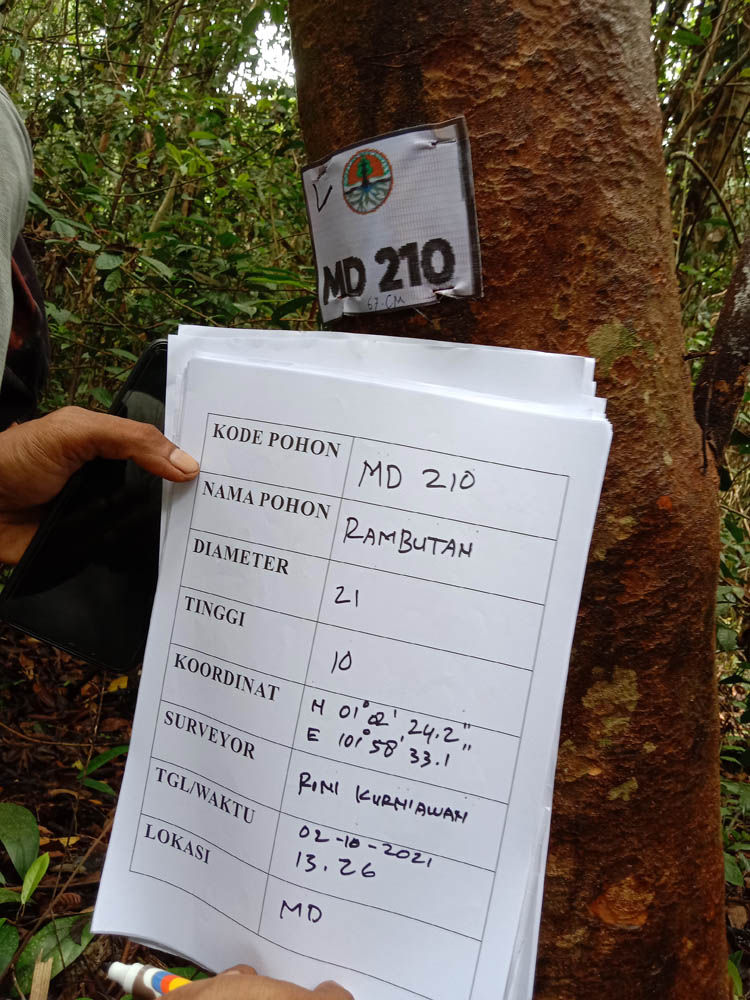 MD 210
67 CM
KODE POHON MD 210
NAMA POHON RAMBUTAN
DIAMETER 21
TINGGI 10
KOORDINAT N 01° 02' 24.2"
E 101° 58' 33.1"
SURVEYOR RONI KURNIAWAN
TGL/WAKTU 02-10-2021
13.26
LOKASI MD